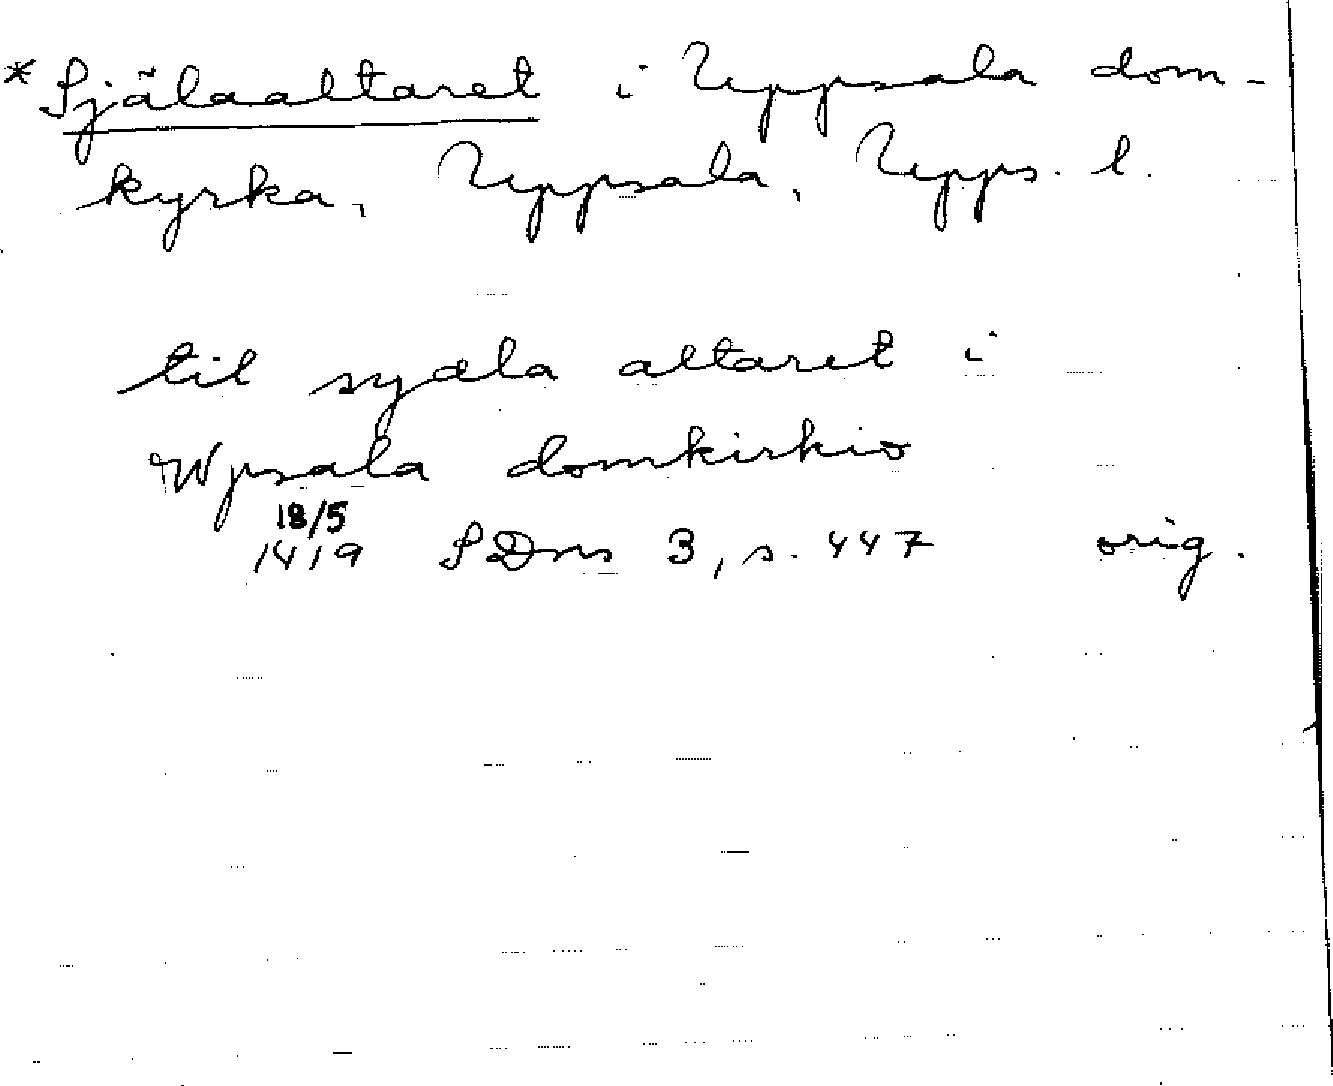 * Själaaltaret i Uppsala dom-
kyrka, Uppsala, Upps. l.
til syæla altaret i
Wpsala domkirkio
18/5
1419 SDns 3, s. 447 orig.